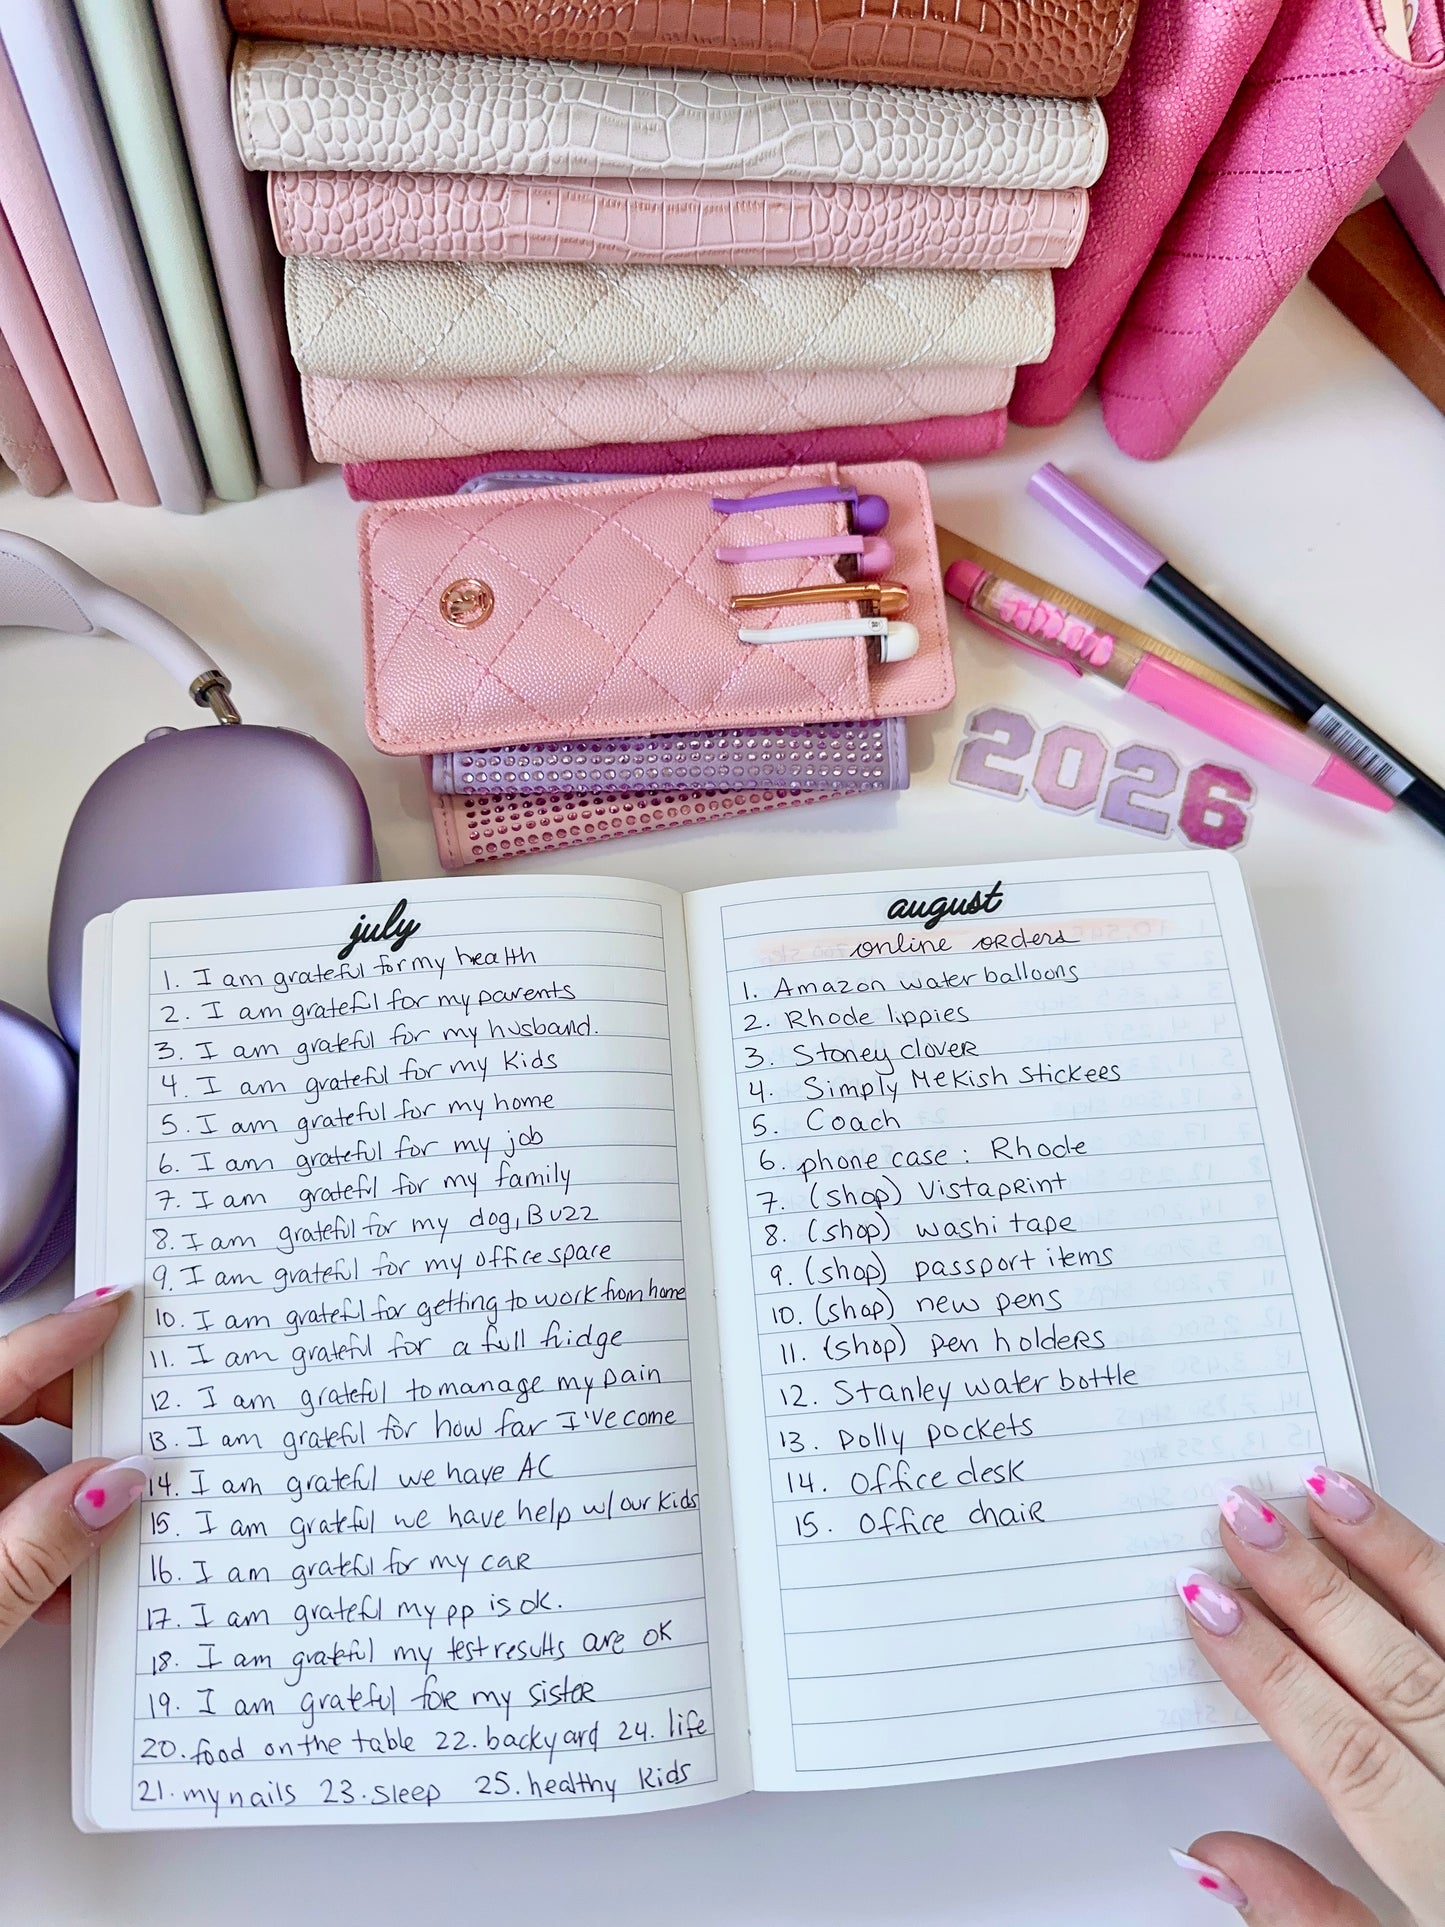 2026
july
1. I am grateful for my health
2. I am grateful for my parents
3. I am grateful for my husband.
4. I am grateful for my kids
5. I am grateful for my home
6. I am grateful for my job
7. I am grateful for my family
8. I am grateful for my dog, Buzz
9. I am grateful for my office space
10. I am grateful for getting to work from home
11. I am grateful for a full fridge
12. I am grateful to manage my pain
13. I am grateful for how far I've come
14. I am grateful we have AC
15. I am grateful we have help w/ our kids
16. I am grateful for my car
17. I am grateful my pp is ok.
18. I am grateful my test results are ok
19. I am grateful for my sister
20. food on the table 22. backyard 24. life
21. my nails 23. sleep 25. healthy kids
august
online orders
1. Amazon water balloons
2. Rhode lippies
3. Stoney clover
4. Simply Mekish stickees
5. Coach
6. phone case: Rhode
7. (shop) vistaprint
8. (shop) washi tape
9. (shop) passport items
10. (shop) new pens
11. (shop) pen holders
12. Stanley water bottle
13. polly pockets
14. office desk
15. office chair